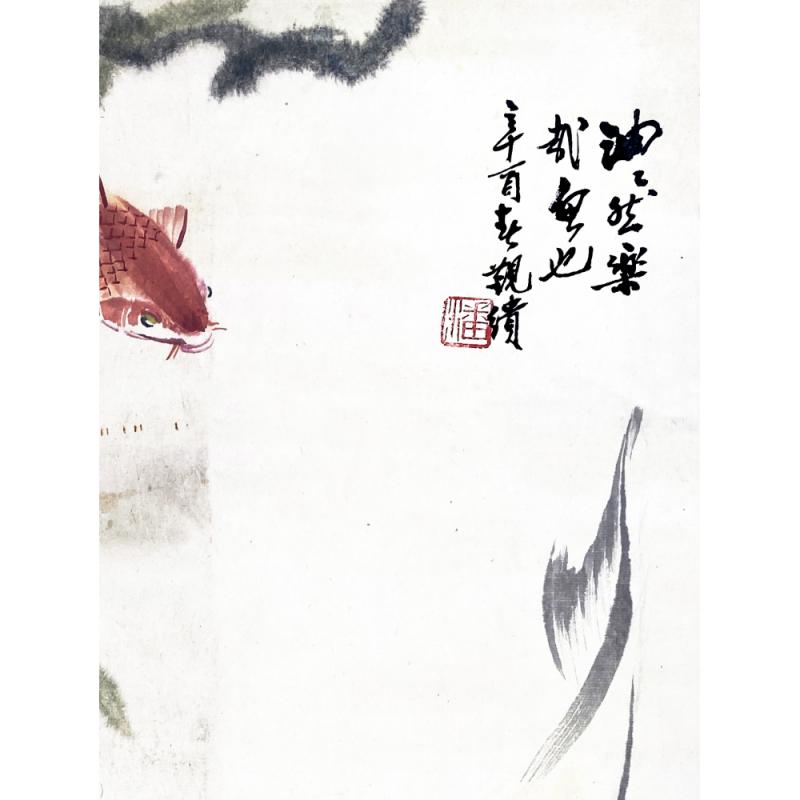 油〻然樂
哉魚也
辛酉春觀繢
潘